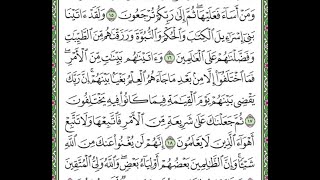 وَمَنْ أَسَاءَ فَعَلَيْهَا ثُمَّ إِلَىٰ رَبِّكُمْ تُرْجَعُونَ ١٥ وَلَقَدْ ءَاتَيْنَا
بَنِىٓ إِسْرَٰٓءِيلَ ٱلْكِتَٰبَ وَٱلْحُكْمَ وَٱلنُّبُوَّةَ وَرَزَقْنَٰهُم مِّنَ ٱلطَّيِّبَٰتِ
وَفَضَّلْنَٰهُمْ عَلَى ٱلْعَٰلَمِينَ ١٦ وَءَاتَيْنَٰهُم بَيِّنَٰتٍ مِّنَ ٱلْأَمْرِ
فَمَا ٱخْتَلَفُوٓا۟ إِلَّا مِنۢ بَعْدِ مَا جَآءَهُمُ ٱلْعِلْمُ بَغْيًۢا بَيْنَهُمْ إِنَّ رَبَّكَ
يَقْضِى بَيْنَهُمْ يَوْمَ ٱلْقِيَٰمَةِ فِيمَا كَانُوا۟ فِيهِ يَخْتَلِفُونَ
١٧ ثُمَّ جَعَلْنَٰكَ عَلَىٰ شَرِيعَةٍ مِّنَ ٱلْأَمْرِ فَٱتَّبِعْهَا وَلَا تَتَّبِعْ
أَهْوَآءَ ٱلَّذِينَ لَا يَعْلَمُونَ ١٨ إِنَّهُمْ لَن يُغْنُوا۟ عَنكَ مِنَ ٱللَّهِ
شَيْـًٔا وَإِنَّ ٱلظَّٰلِمِينَ بَعْضُهُمْ أَوْلِيَآءُ بَعْضٍ وَٱللَّهُ وَلِىُّ ٱلْمُتَّقِينَ